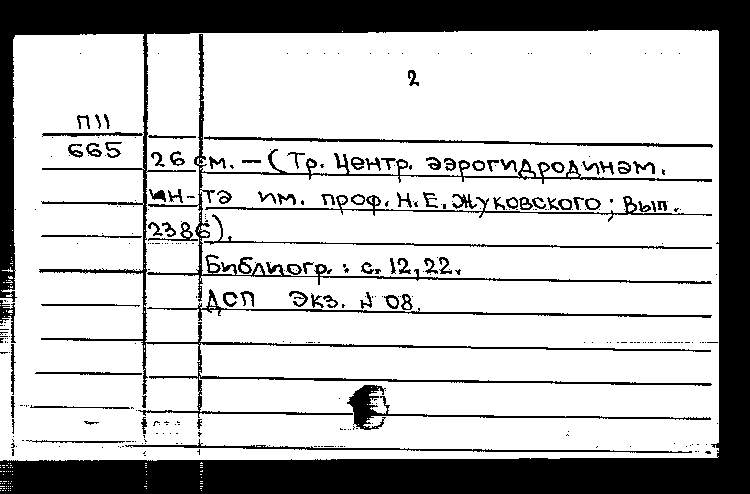 2
П11
665
26 см. – (Тр. Центр. аэрогидродинам.
ин-та им. проф. Н.Е. Жуковского; Вып.
2386).
Библиогр.: с. 12, 22.
ДСП Экз. № 08.